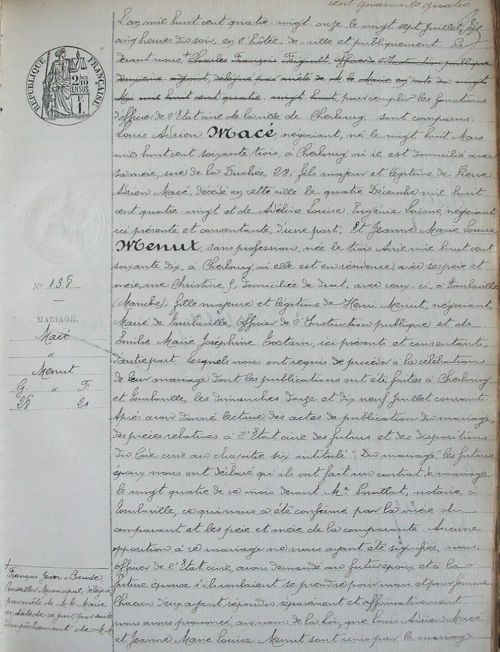 cent quarante quatre
RÉPUBLIQUE FRANÇAISE
L'an mil huit cent quatre vingt onze le vingt sept juillet,
cinq heures du soir, en l'hôtel de ville et publiquement
devant nous + Charles François officier de l'Instruction publique
deuxième adjoint, délégué par arrêté de M. le Maire en date du vingt
Mai mil huit cent quatre vingt huit, pour remplir les fonctions
d'officier de l'Etat civil de la ville de Cherbourg, sont comparus:
Louis Adrien Macé négociant, né le vingt huit Mars
mil huit cent soixante trois, à Cherbourg où il est domicilié avec
sa mère, rue de la Duchée, 28; fils majeur et légitime de Pierre
Adrien Macé, décédé en cette ville le quatre Décembre mil huit
cent quatre vingt et de Adeline Louise Eugénie Laisné, négociante
ici présente et consentante, d'une part. Et Jeanne Marie Louise
Menut, sans profession, née le trois mil huit cent
soixante dix, à Cherbourg où elle est en résidence avec ses père et
mère, rue Christine 5, domiciliée de droit, avec ceux-ci, à Tourlaville
(Manche), fille majeure et légitime de Henri Menut, négociant
Maire de Tourlaville, officier de l'Instruction publique et de
Emilie Marie Joséphine Costain, ici présents et consentants,
d'autre part. lesquels nous ont requis de procéder à la célébration
de leur mariage dont les publications ont été faites à Cherbourg
et Tourlaville, les dimanches douze et dix neuf juillet courant
Après avoir donné lecture des actes de publication du mariage,
des pièces relatives à l'Etat civil des futurs et des dispositions
du Code civil au chapitre six intitulé "du mariage", les futurs
époux nous ont déclaré qu'ils ont fait un contrat de mariage
le vingt quatre de ce mois devant Me notaire à
Tourlaville, ce qui nous a été confirmé par la mère du
comparant et les père et mère de la comparante. Aucune
opposition à ce mariage ne nous ayant été signifiée, nous
officier de l'Etat civil, avons demandé au futur époux et à la
future épouse s'ils voulaient se prendre pour mari et pour femme
Chacun d'eux ayant répondu séparément et affirmativement
nous avons prononcé, au nom de la loi, que Louis Adrien Macé
et Jeanne Marie Louise Menut sont unis par le mariage
No 138
MARIAGE.
Macé
&
Menut
G & F
28 21
+
François Jean
Conseiller Municipal, délégué
par arrêté de M. le Maire
en date de ce jour, par suite
d'empêchement de